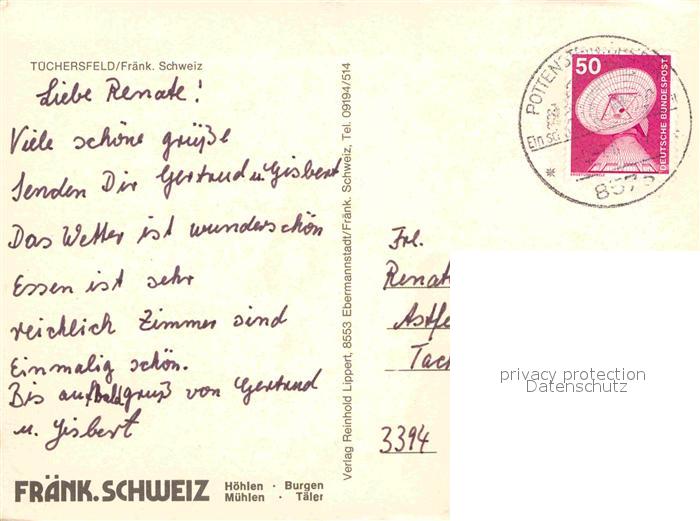 TÜCHERSFELD/Fränk. Schweiz
Liebe Renate!
Viele schöne grüße
Senden Dir Gertrud u Gisbert
Das Wetter ist wunderschön
Essen ist sehr
reichlich Zimmer sind
Einmalig schön.
Bis auf bald gruß von Gertrud
u. Gisbert
FRÄNK. SCHWEIZ
Höhlen · Burgen
Mühlen · Täler
Verlag Reinhold Lippert, 8553 Ebermannstadt/Fränk. Schweiz, Tel. 09194/514
POTTENST
Ein
857
50
DEUTSCHE BUNDESPOST
Frl.
Renat
Astfe
Tac
3394
privacy protection
Datenschutz